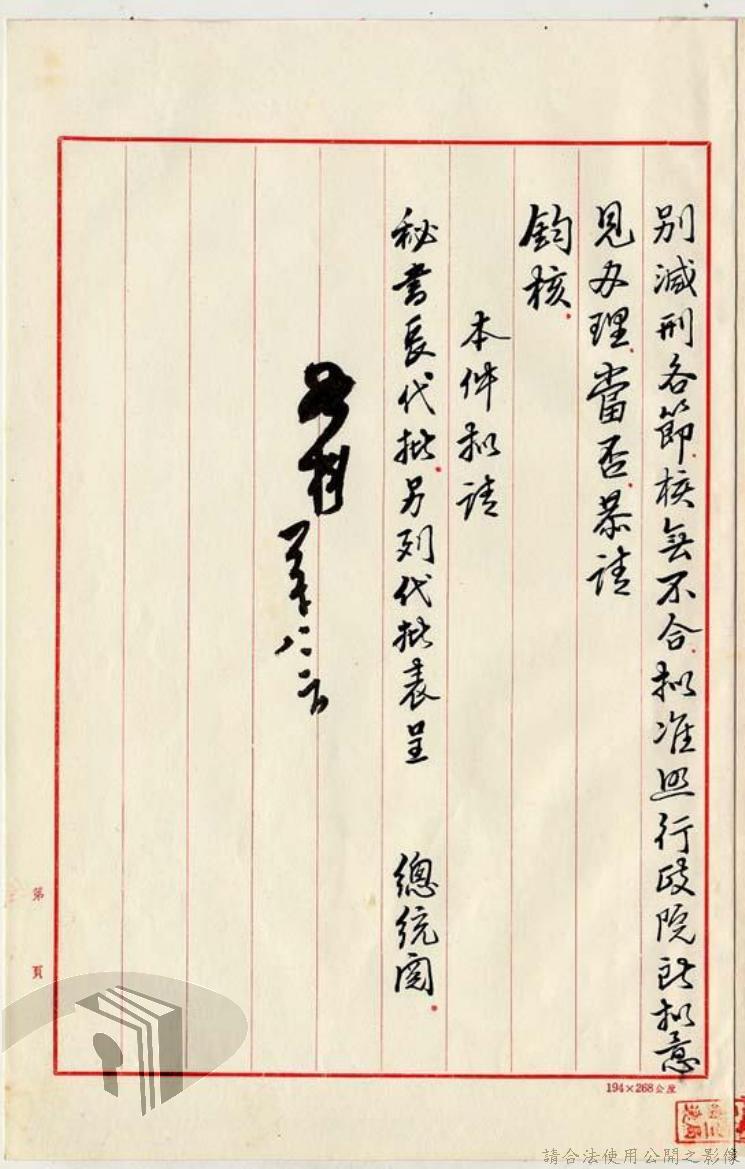 別減刑各節.核無不合.拟准照行政院所拟意
見办理.當否.恭請
鈞核.
本件拟請
秘書長代批.另列代批表呈 總統閱.
第 頁
194×268公厘
請合法使用公開之影像